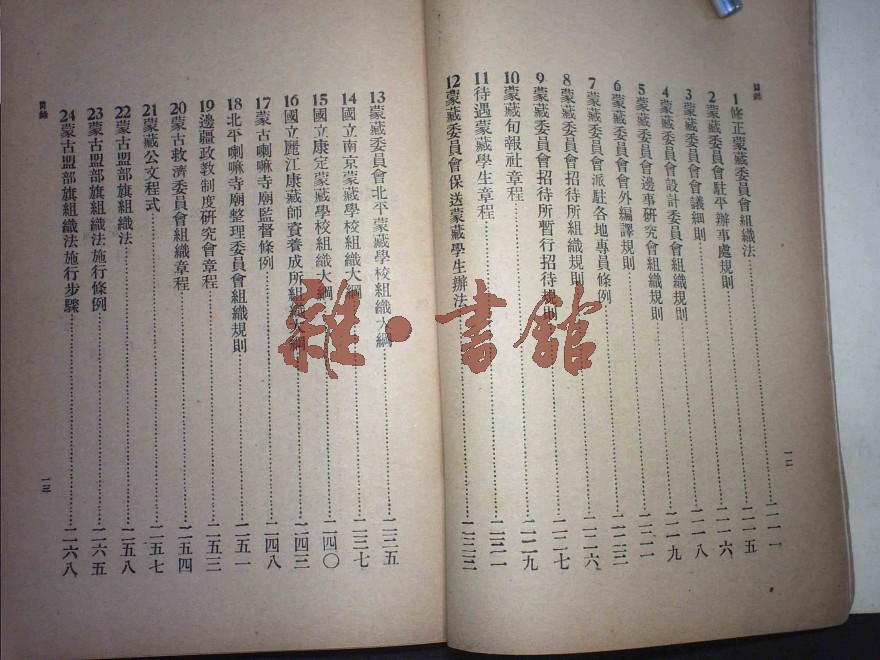 目錄
1 修正蒙藏委員會組織法……二一一
2 蒙藏委員會駐平辦事處規則……二一五
3 蒙藏委員會會議細則……二一六
4 蒙藏委員會設計委員會組織規則……二一八
5 蒙藏委員會邊事研究會組織規則……二一九
6 蒙藏委員會會外編譯規則……二二一
7 蒙藏委員會派駐各地專員條例……二二三
8 蒙藏委員會招待所組織規則……二二六
9 蒙藏委員會招待所暫行招待規則……二二七
10 蒙藏旬報社章程……二二九
11 待遇蒙藏學生章程……二三一
12 蒙藏委員會保送蒙藏學生辦法……二三三
一二
13 蒙藏委員會北平蒙藏學校組織大綱……二三五
14 國立南京蒙藏學校組織大綱……二三七
15 國立康定蒙藏學校組織大綱……二四〇
16 國立麗江康藏師資養成所組織大綱……二四三
17 蒙古喇嘛寺廟監督條例……二四八
18 北平喇嘛寺廟整理委員會組織規則……二五一
19 邊疆政教制度研究會章程……二五三
20 蒙古救濟委員會組織章程……二五四
21 蒙藏公文程式……二五七
22 蒙古盟部旗組織法……二五八
23 蒙古盟部旗組織法施行條例……二六五
24 蒙古盟部旗組織法施行步驟……二六八
目錄
一三
雜·書館